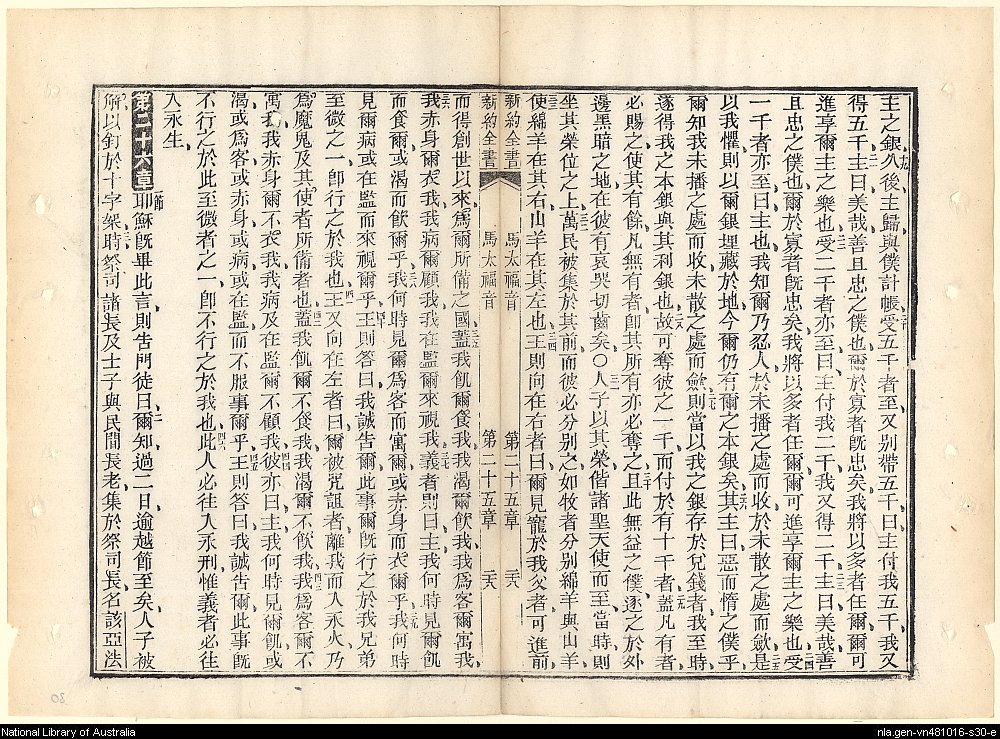 主之銀久後主歸與僕計帳受五千者至又別帶五千曰主付我五千我又
得五千主曰美哉善且忠之僕也爾於寡者既忠矣我將以多者任爾爾可
進享爾主之樂也受二千者亦至曰主付我二千我又得二千主曰美哉善
且忠之僕也爾於寡者既忠矣我將以多者任爾爾可進享爾主之樂也受
一千者亦至曰主也我知爾乃忍人於未播之處而收於未散之處而歛是
以我懼則以爾銀埋藏於地今爾仍有爾之本銀矣其主曰惡而惰之僕乎
爾知我未播之處而收未散之處而歛則當以我之銀存於兌錢者我至時
遂得我之本銀與其利銀也故可奪彼之一千而付於有十千者蓋凡有者
必賜之使其有餘凡無有者即其所有亦必奪之且此無益之僕逐之於外
邊黑暗之地在彼有哀哭切齒矣〇人子以其榮偕諸聖天使而至當時則
坐其榮位之上萬民被集於其前而彼必分別之如牧者分別綿羊與山羊
使綿羊在其右山羊在其左也王則向在右者曰爾見寵於我父者可進前
新約全書 馬太福音 第二十五章 二六
新約全書 馬太福音 第二十五章 二六
而得創世以來爲爾所備之國蓋我飢爾食我我渴爾飲我我爲客爾寓我
我赤身爾衣我我病爾顧我我在監爾來視我義者則曰主我何時見爾飢
而食爾或渴而飲爾乎我何時見爾爲客而寓爾或赤身而衣爾乎我何時
見爾病或在監而來視爾乎王則答曰我誠告爾此事爾既行之於我兄弟
至微之一即行之於我也王又向在左者曰爾被咒詛者離我而入永火乃
爲魔鬼及其使者所備者也蓋我飢爾不食我我渴爾不飲我我爲客爾不
寓我我赤身爾不衣我我病及在監爾不顧我彼亦曰主我何時見爾飢或
渴或爲客或赤身或病或在監而不服事爾乎王則答曰我誠告爾此事既
不行之於此至微者之一即不行之於我也此人必往入永刑惟義者必往
入永生
第二十六章 一節 耶穌既畢此言則告門徒曰爾知過二日逾越節至矣人子被
解以釘於十字架時祭司諸長及士子與民間長老集於祭司長名該亞法
National Library of Australia
nla.gen-vn481016-s30-e